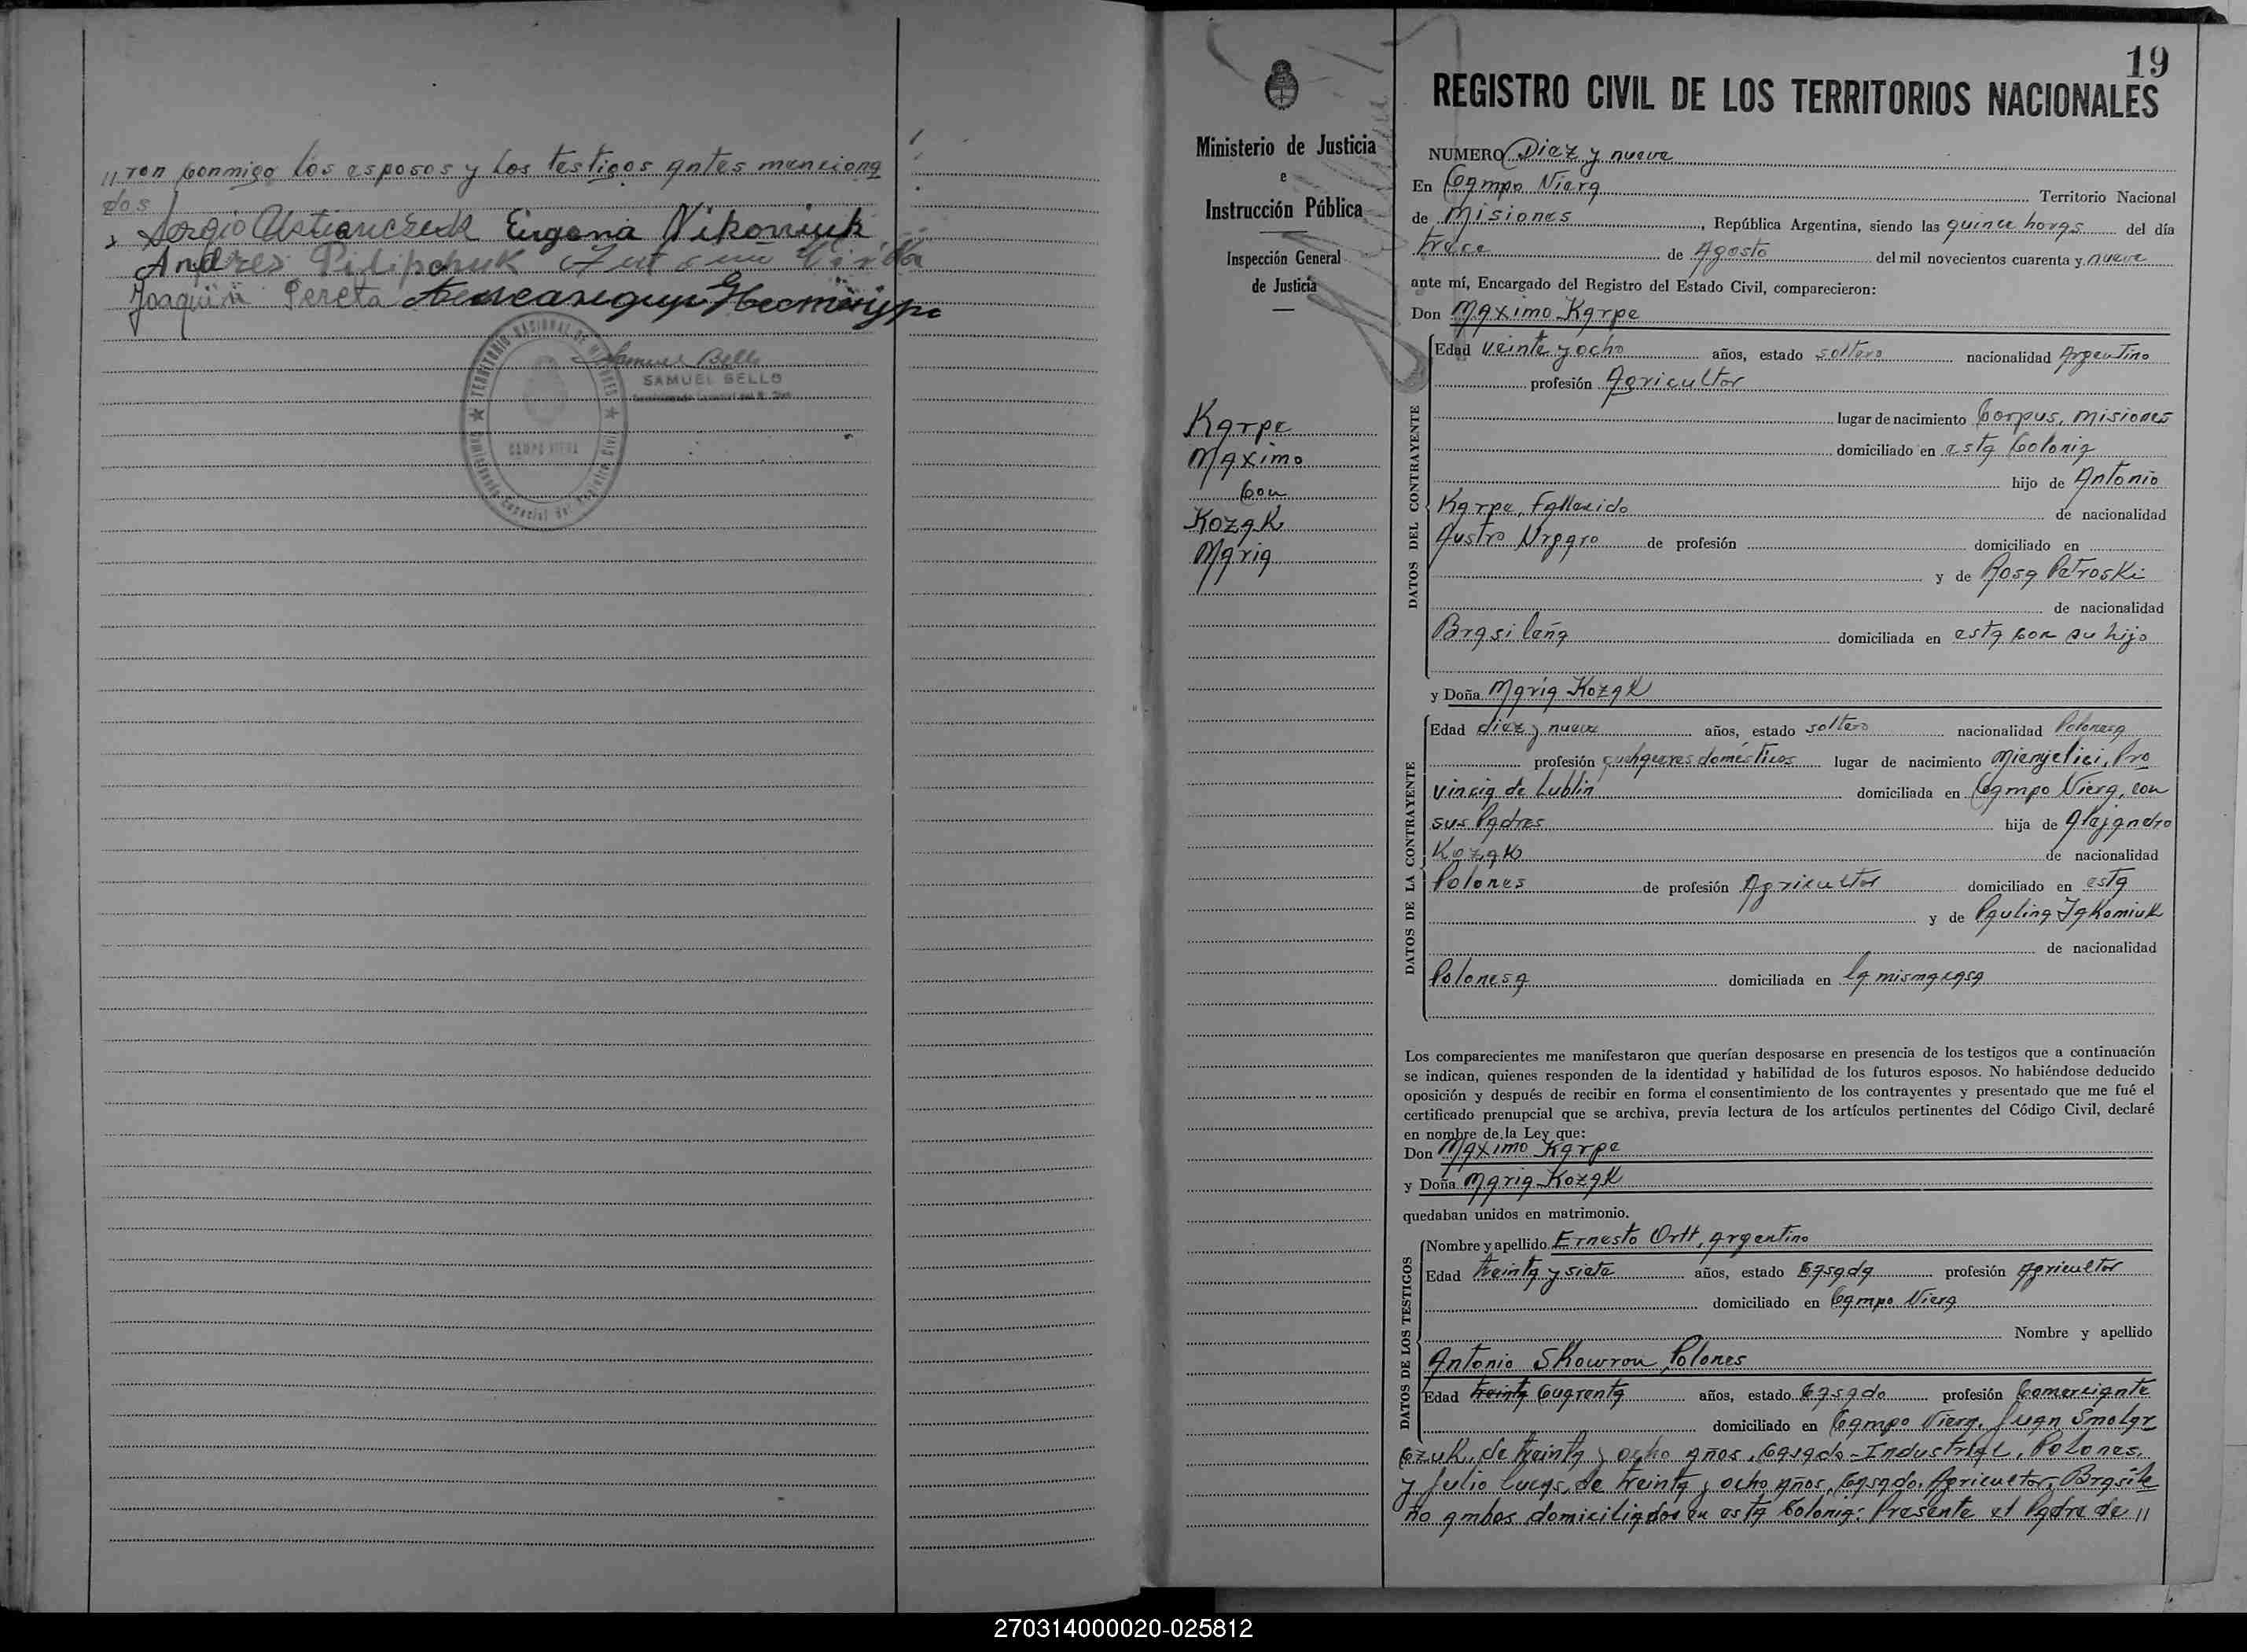 "ron conmigo los esposos y los testigos antes menciona
dos
Sergio Ustianczuk Eugenia Nikoniuk
Andres Pilipchuk
Joaquin Pereta
TERRITORIO NACIONAL DE MISIONES
CAMPO VIERA
Samuel Bello
SAMUEL BELLO
Ministerio de Justicia
e
Instrucción Pública
Inspección General
de Justicia
Karpe
Maximo
con
Kozak
Maria
19
REGISTRO CIVIL DE LOS TERRITORIOS NACIONALES
NUMERO Diez y nueve
En Campo Viera Territorio Nacional
de Misiones, República Argentina, siendo las quince horas del día
trece de Agosto del mil novecientos cuarenta y nueve
ante mí, Encargado del Registro del Estado Civil, comparecieron:
Don Maximo Karpe
DATOS DEL CONTRAYENTE
Edad veinte y ocho años, estado soltero nacionalidad Argentino
profesión Agricultor
lugar de nacimiento Corpus, Misiones
domiciliado en esta Colonia
hijo de Antonio
Karpe, Fallecido de nacionalidad
Austro Ungaro de profesión domiciliado en
y de Rosa Petroski
de nacionalidad
Brasileña domiciliada en esta con su hijo
y Doña Maria Kozak
DATOS DE LA CONTRAYENTE
Edad diez y nueve años, estado soltero nacionalidad Polonesa
profesión quehaceres domésticos lugar de nacimiento Pro
vincia de Lublin domiciliada en Campo Viera, con
sus Padres hija de Alejandro
Kozak de nacionalidad
Polones de profesión Agricultor domiciliado en esta
y de Paulina Jakomiuk
de nacionalidad
Polonesa domiciliada en la misma casa
Los comparecientes me manifestaron que querían desposarse en presencia de los testigos que a continuación
se indican, quienes responden de la identidad y habilidad de los futuros esposos. No habiéndose deducido
oposición y después de recibir en forma el consentimiento de los contrayentes y presentado que me fué el
certificado prenupcial que se archiva, previa lectura de los artículos pertinentes del Código Civil, declaré
en nombre de la Ley que:
Don Maximo Karpe
y Doña Maria Kozak
quedaban unidos en matrimonio.
DATOS DE LOS TESTIGOS
Nombre y apellido Ernesto Ortt, Argentino
Edad treinta y siete años, estado Casada profesión Agricultor
domiciliado en Campo Viera
Nombre y apellido
Antonio Skowron, Polones
Edad treinta Cuarenta años, estado Casado profesión Comerciante
domiciliado en Campo Viera, Juan Smolar
czuk, de treinta y ocho años, Casado - Industrial, Polones.
y Julio Lucas, de treinta y ocho años, Casado, Agricultor, Brasile
ño ambos domiciliados en esta Colonia: Presente el Padre de "
270314000020-025812